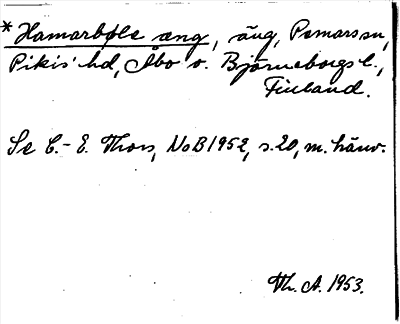 *Hamarbøle æng, äng, Pemars sn,
Pikis' hd, Åbo o. Björneborgs l.,
Finland.
Se C.-E. Thors, NoB 1952, s. 20, m. hänv.
Th. A. 1953.